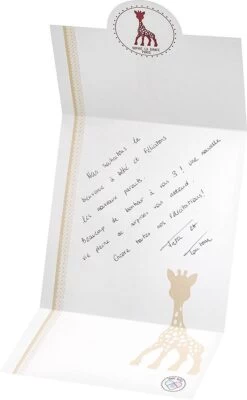 SOPHIE LA GIRAFE
Nous souhaitons la
bienvenue à bébé et félicitons
les nouveaux parents.
Beaucoup de bonheur à vous 3 ! Une nouvelle
vie pleine de surprises vous attend !
Encore toutes nos félicitations !
Tata et
Tonton